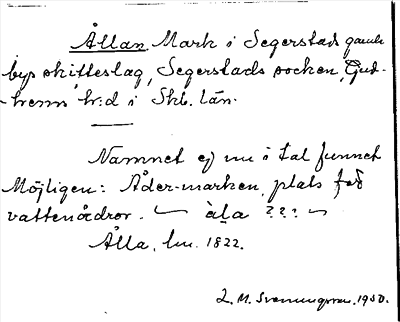 Ållan. Mark i Segerstads gamla
bys skifteslag, Segerstads socken, Gud-
-hems hr:d i Skb. län.
Namnet ej nu i tal funnet
Möjligen: Åder-marken, plats för
vattenådror. ~ åla ??? ~
Ålla, lm. 1822.
L. M. Svenungsson. 1930.